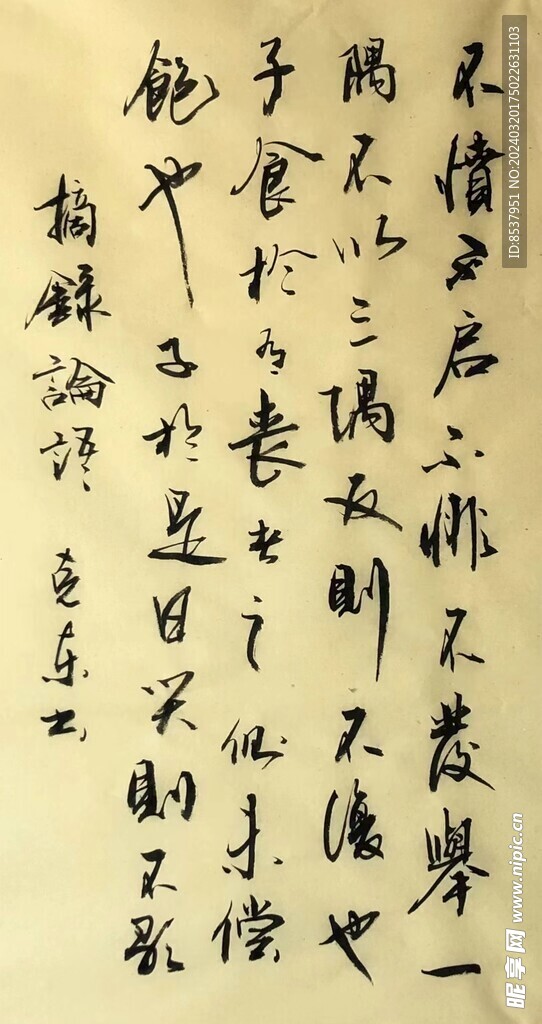 不憤不启不悱不發舉一
隅不以三隅反則不復也
子食於有喪者之側未偿
飽也子於是日哭則不歌
摘録論語 克东书
ID:8537951 NO:20240320175022631103
昵享网 www.nipic.cn